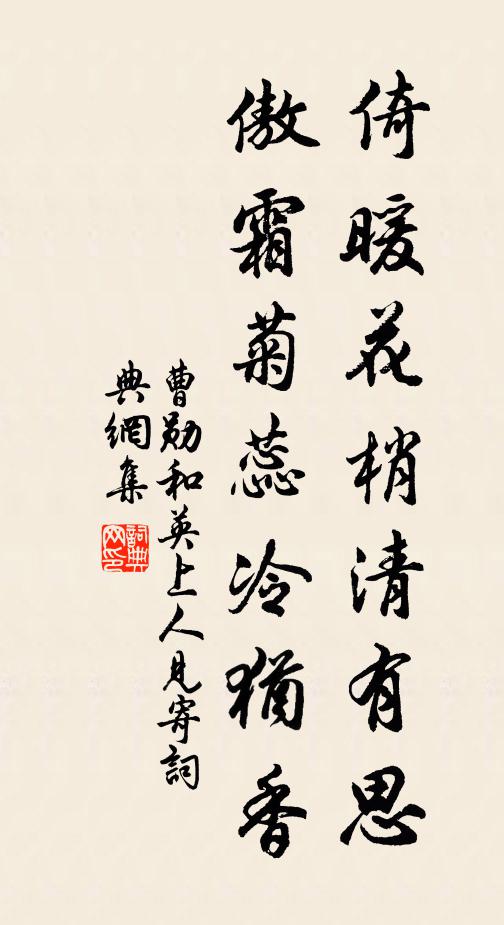 倚暖花梢清有思
傲霜菊蕊冷猶香
曹勛和英上人見寄詞
典網集
詞典
网印